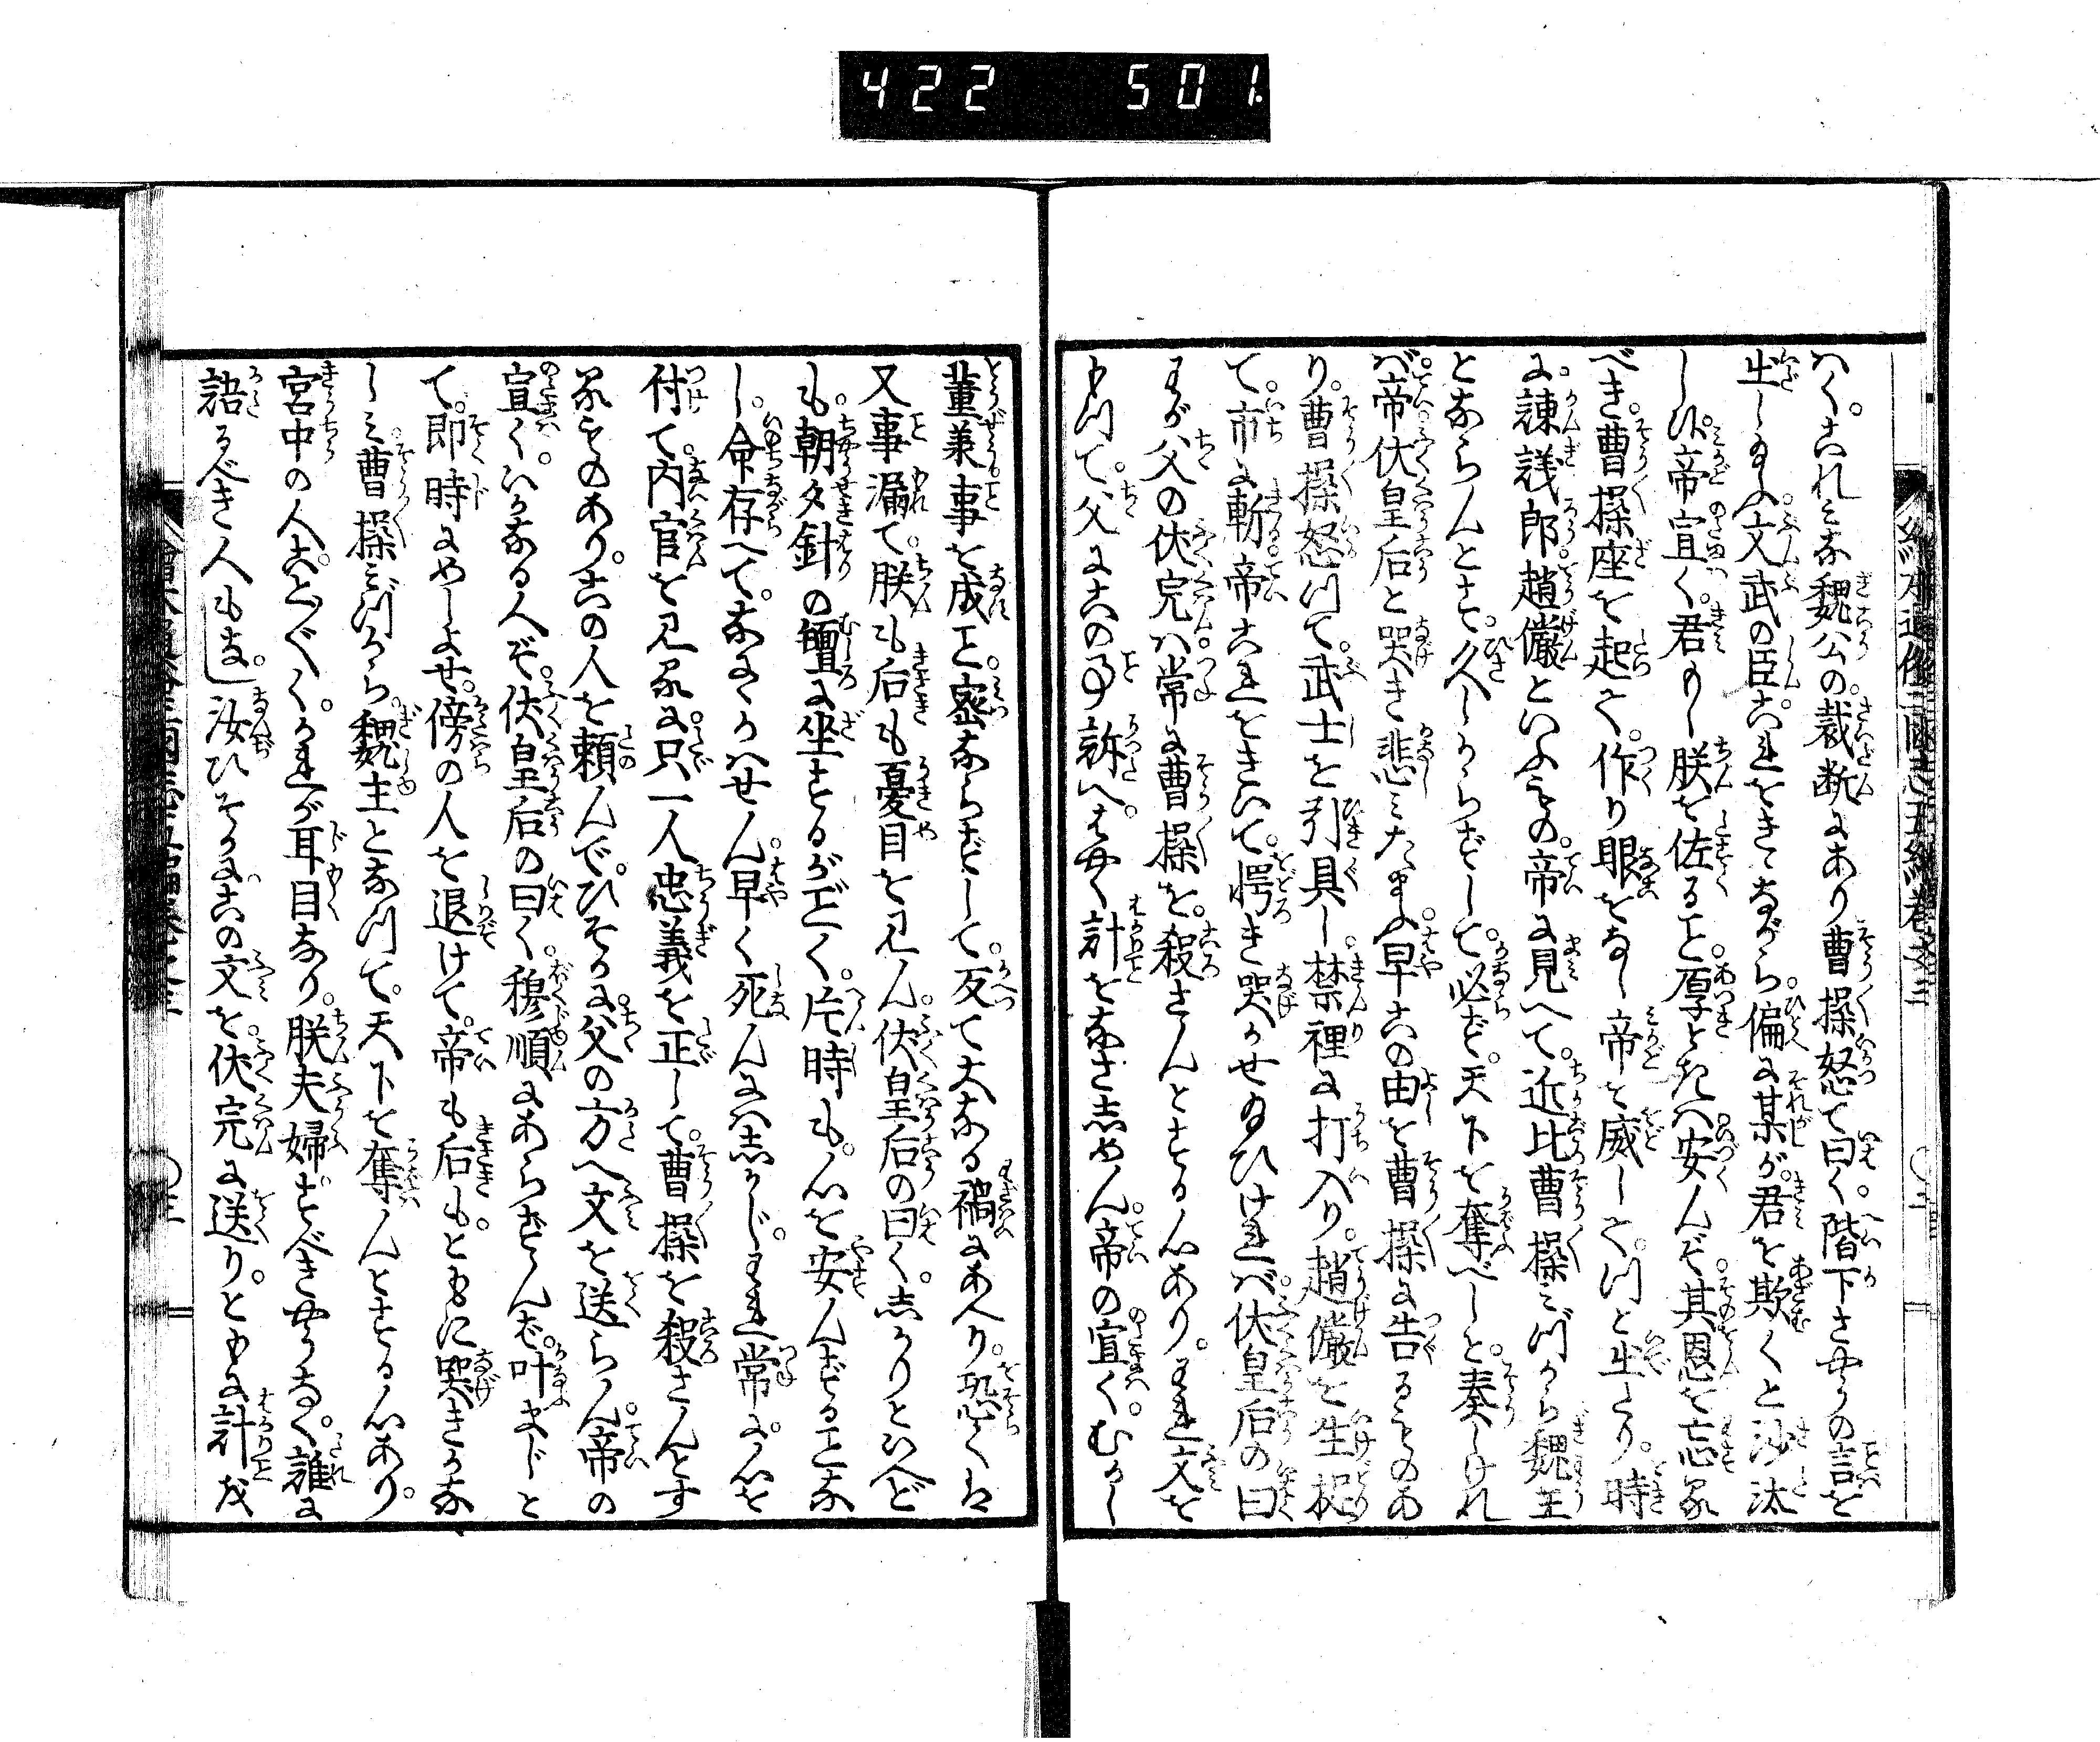 422 501.
はく。これみな魏公の。裁断にあり曹操怒て曰く。階下さやうの言を
出し給ふ文武の臣。これをきゝながら。偏に某が。君を欺くと沙汰
しけ。帝宣く。君もし朕を佐ること。厚ときんバ安んぞ。其恩を忘る
べき。曹操座を起て。作り眼をなし帝を威して。つと出たり。時
に。諌議郎趙儼といふもの。帝に見へて。近比曹操みづから魏王
とならんとす。久しからずして。必ず。天下を奪べしと。奏しけれ
ば。帝伏皇后と哭き悲みたまふ。早この由を曹操に告るものあ
り。曹操怒つて。武士を引具し。禁裡に打入り。趙儼を生捉
て。市に斬。帝これをきいて。愕き哭かせ給ひけれバ。伏皇后の曰
わが父の伏完ハ。常に曹操を。殺さんとする心あり。われ文を
もつて。父にこの事訴へ。はやく計をなさしめん。帝の宣く。むかし
董承事を成こと。密ならずして。反て大なる禍にあへり。恐くは
又事漏て。朕も后も憂目を見ん。伏皇后の曰く。しかりといへど
も。朝夕針の氈に坐するがごとく。片時も。心を安んずることな
し。命存へて。なにかハせん。早く死んにハしかじ。われ常に。心を
付て。内官を見るに。只一人忠義を正して。曹操を殺さんとす
るものあり。この人を頼んで。ひそかに。父の方へ文を送らん。帝の
宣く。いかなる人ぞ。伏皇后の曰く。穆順にあらずんバ。叶まじと
て。即時にめしよせ。傍の人を退けて。帝も后も。ともに哭きかな
しみ曹操みづから。魏主となつて。天下を奪んとする心あり。
宮中の人ことごとく。かれが耳目なり。朕夫婦。すべきやうなく。誰に
語るべき人もなし。汝ひそかに。この文を。伏完に送り。ともに計を